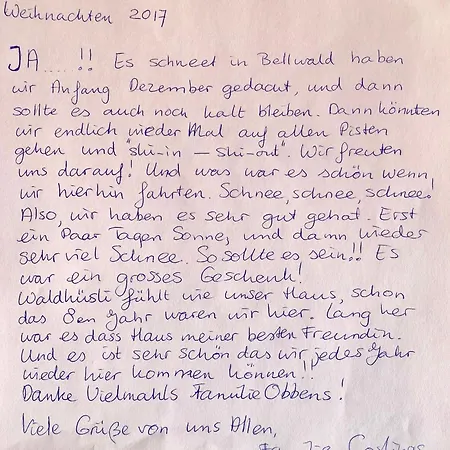 Weihnachten 2017
JA..... !! Es schneet in Bellwald haben
wir Anfang Dezember gedacut, und dann
sollte es auch noch kalt bleiben. Dann könnten
wir endlich wieder Mal auf allen Pisten
gehen und "ski-in – ski-out". Wir freuten
uns darauf! Und was war es schön wenn
wir hierhin fahrten. Schnee, schnee, schnee!
Also, wir haben es sehr gut gehat. Erst
ein Paar Tagen Sonne, und damn wieder
sehr viel Schnee. So sollte es sein!! Es
war ein grosses Geschenk!
Waldhüsli fühlt wie unser Haus, schon
das 8en Jahr waren wir hier. Lang her
war es dass Haus meiner besten Freundin.
Und es ist sehr schön das wir jedes Jahr
wieder hier kommen können!!
Danke Vielmahls Familie Obbens!
Viele Grüße von uns Allen,